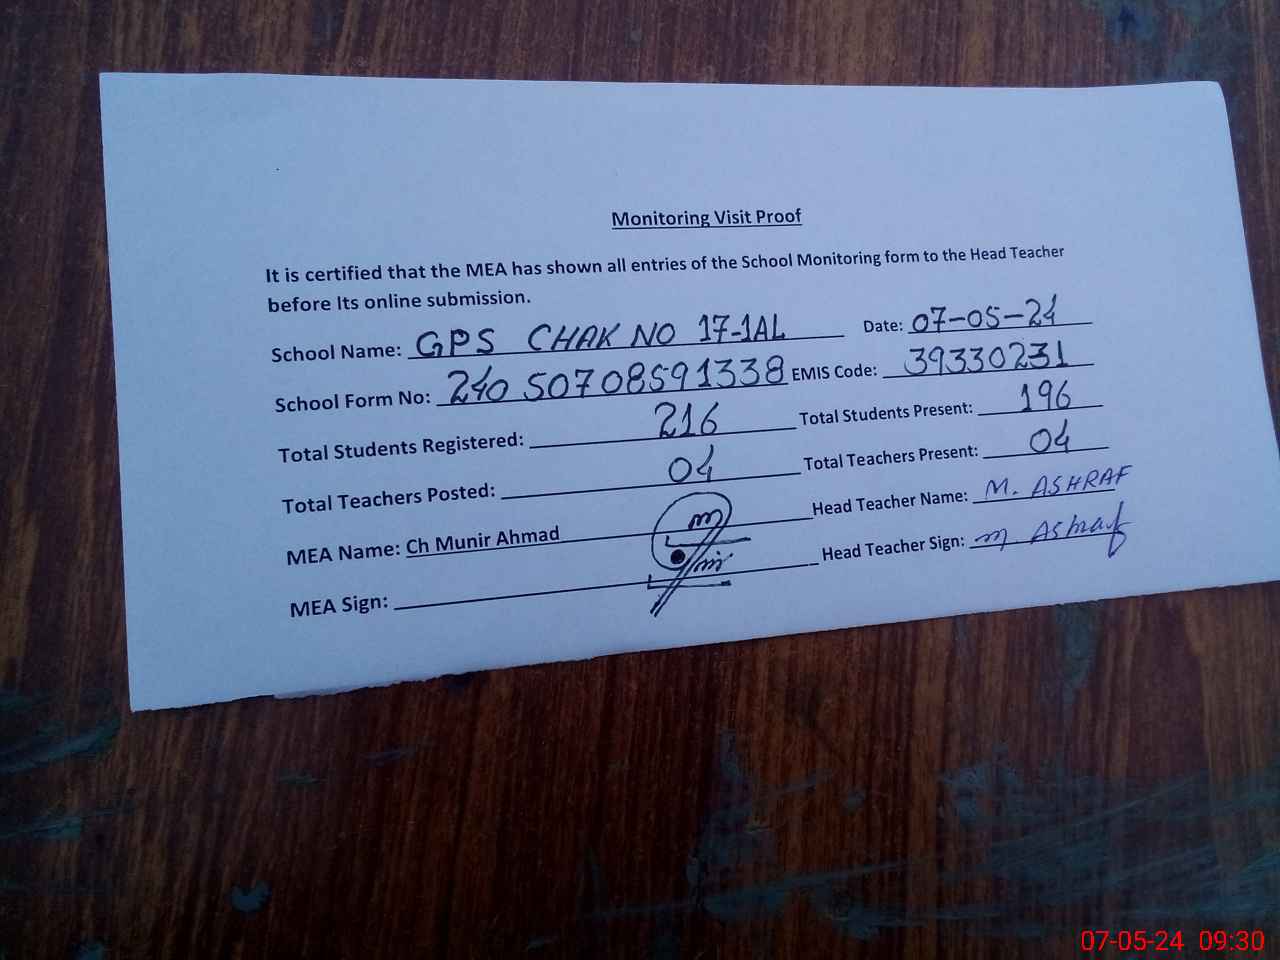 Monitoring Visit Proof
It is certified that the MEA has shown all entries of the School Monitoring form to the Head Teacher
before Its online submission.
School Name: GPS CHAK NO 17-1AL Date: 07-05-24
School Form No: 240 50708591338 EMIS Code: 39330231
Total Students Registered: 216 Total Students Present: 196
Total Teachers Posted: 04 Total Teachers Present: 04
MEA Name: Ch Munir Ahmad Head Teacher Name: M. ASHRAF
MEA Sign: Head Teacher Sign: M. Ashraf
07-05-24 09:30